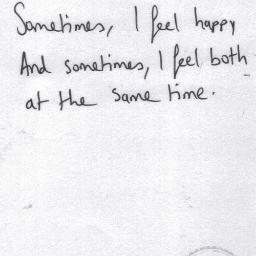 Sometimes, I feel happy
And sometimes, I feel both
at the same time.